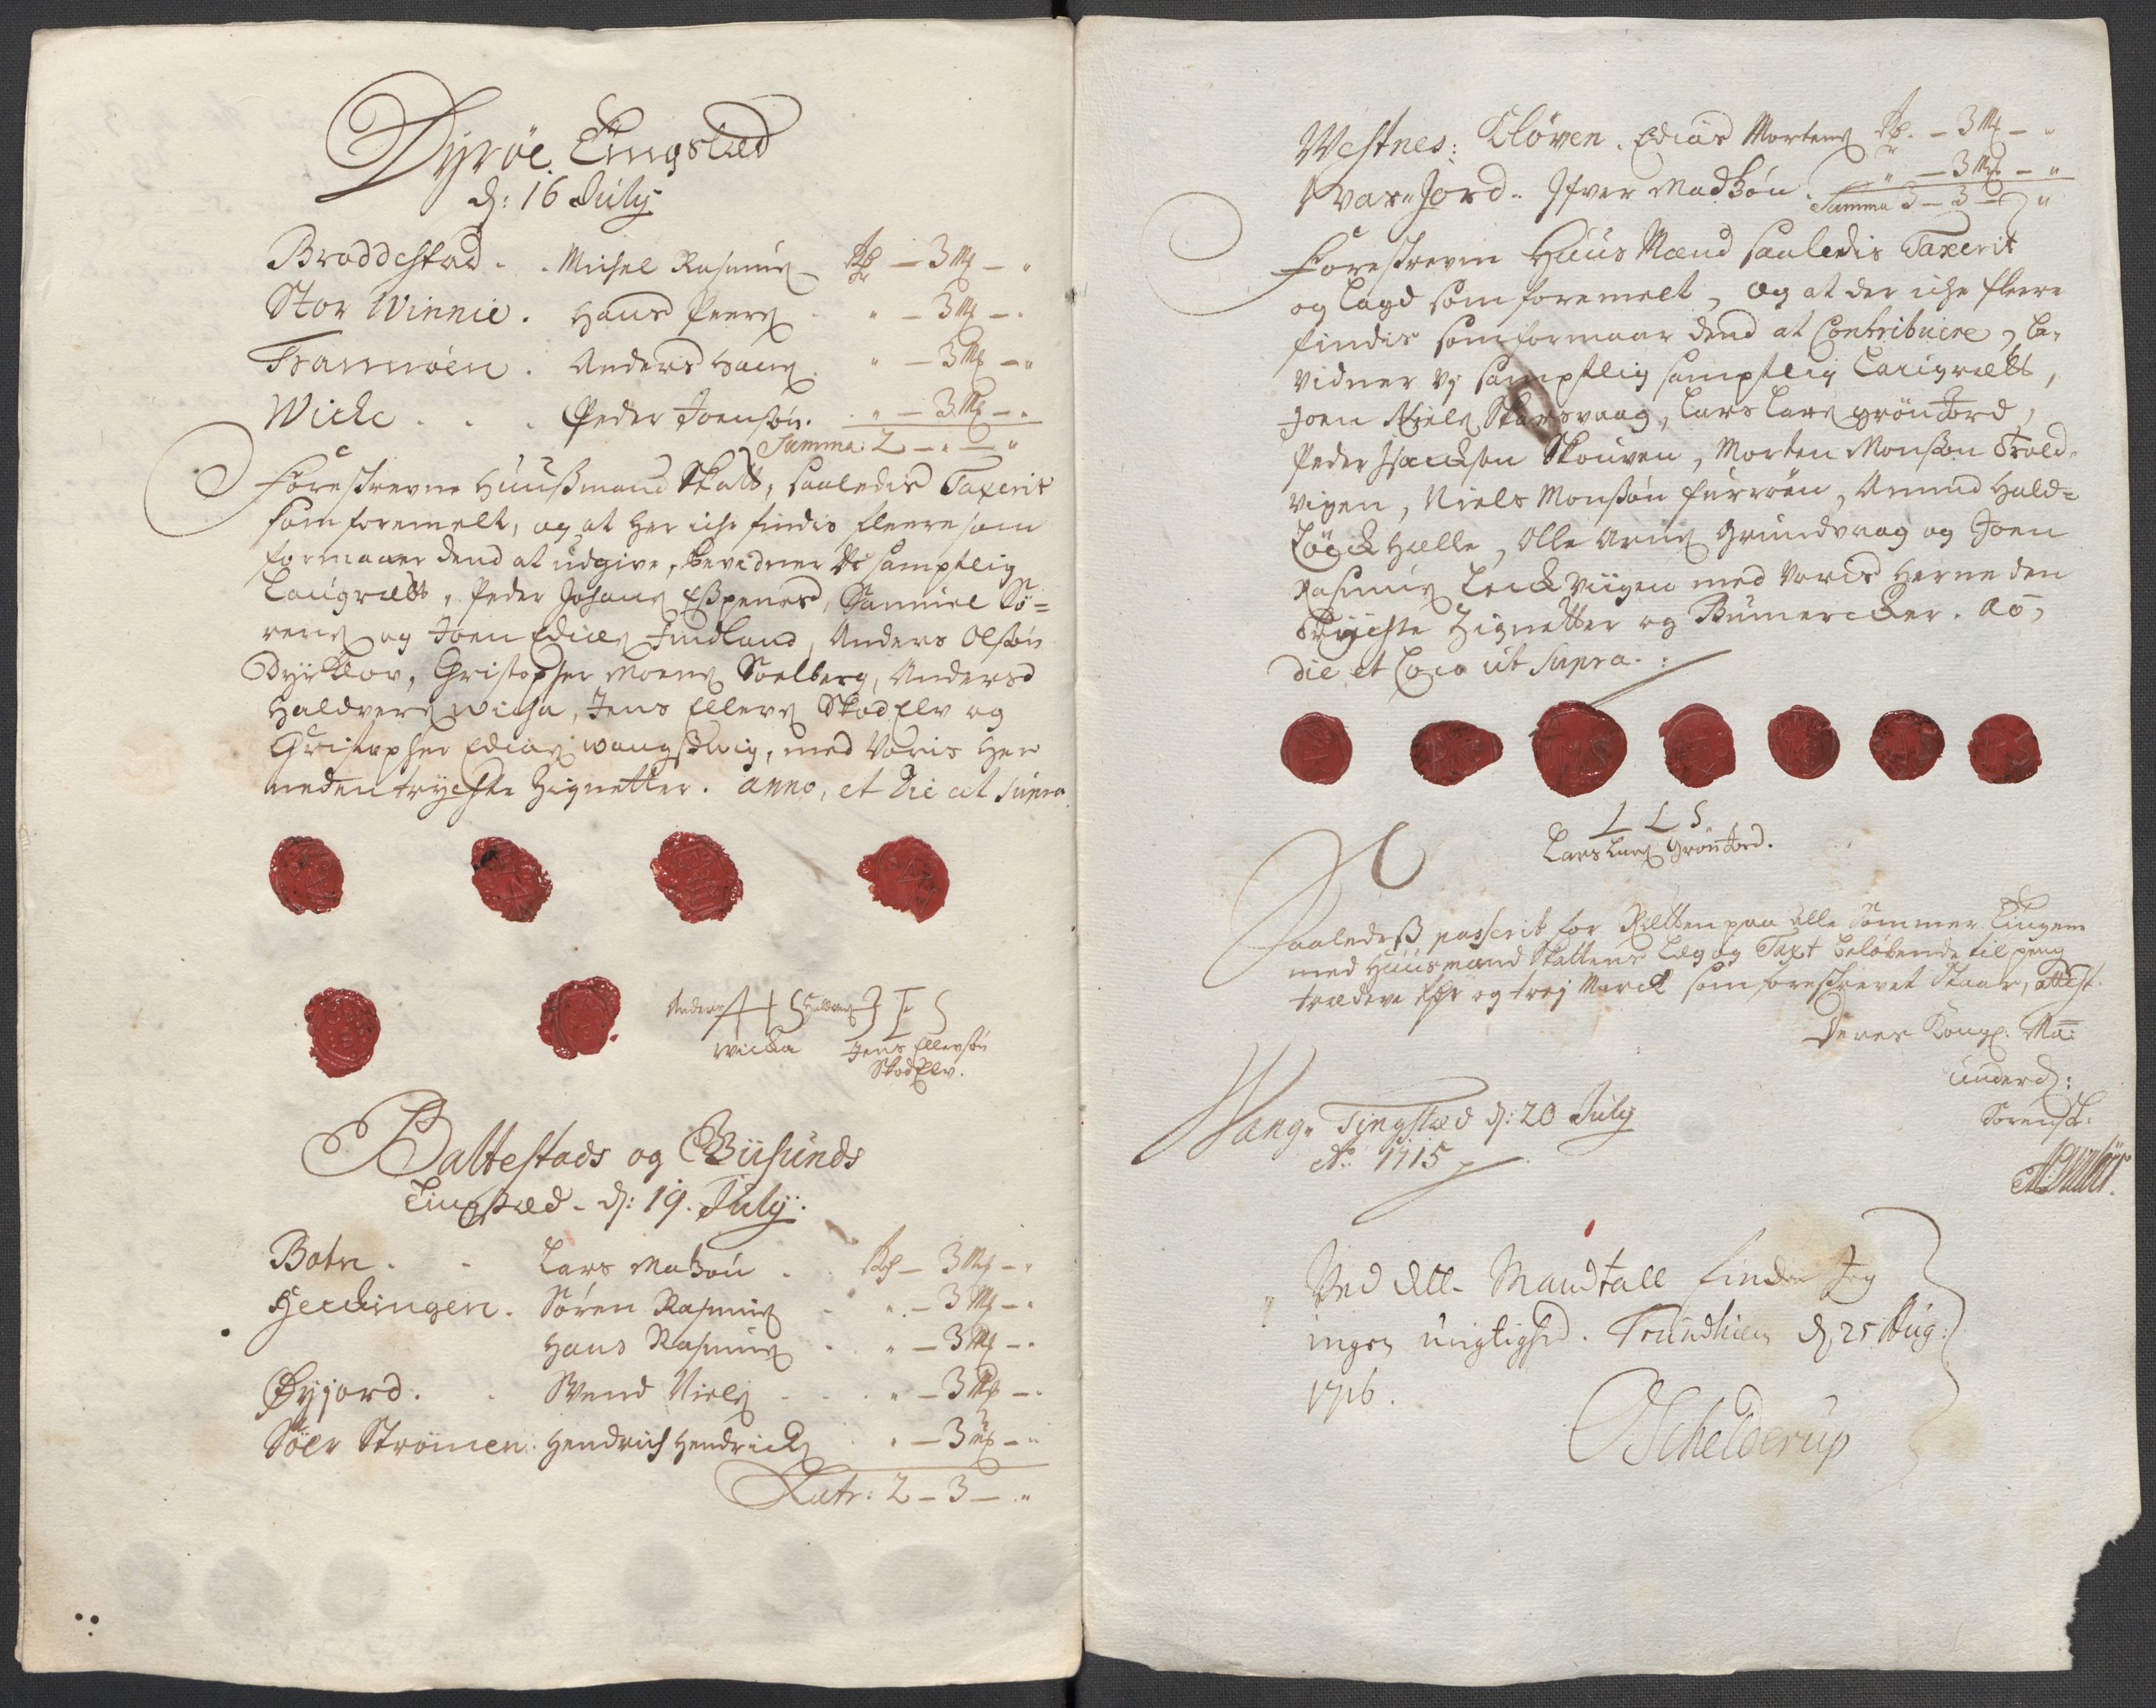 Dyrøe Tingsted
d: 16 July
Broddestad . . Michel Rasmus — 3 M — "
Stor Winnie . Hans Peers . " — 3 M — "
Trannøen . Anders Hans . " — 3 M — "
Wicke . . . Peder Joensøn . " — 3 M — "
Summa: 2 — " — "
Foreskrevne Huusmand Skatt, saaledis Taxerit
som foremelt, og at her iche findis fleere som
formaaer dend at udgive, bevidner samptlig
Laugrætt, Peder Johans Espenes, Samuel Sø=
rens og Joen Findland, Anders Olsøn
Dyrkløv, Christopher Moens Soelberg, Anders
Haldvers Wicha, Jens Ellers Skodelv og
Christopher wangswiig, med Voris Her
neden trychte Zignetter. anno, et Die ut supra
Anders A H S Haldvers J E S
Wicka Jens Ellersøn
Skodelv.
Baltestads og Giisunds
Tingsted - d: 19. July.
Botn . . Lars Madsøn . . — 3 M — "
Heckingen . Søren Rasmus . " — 3 M — "
Hans Rasmus . . " — 3 M — "
Øyjord . . Svend Niels . . " — 3 M — "
Søer Strømen . Hendrich Hendricks . " — 3 M — "
Latr: 2 — 3 — "
Westnes: Kløven . Edias Mortens — 3 M — "
Svar=Jord . Ifver Madsøn . " — 3 M — "
Summa 3 — 3 — "
Foreskrevne Huus Mænd saaledis Taxerit
og lagd som foremelt, og at der iche fleere
findis som formaar dend at Contribuere, be=
vidner vj samptlig samptlig Laugrætt,
Joen Niels Skarsvaag, Lars Lars grønJord,
Peder Isackson Skouven, Morten Monson Trold=
vigen, Niels Monsøn furrøen, Amund Hald=
Helle, Olle Arns Grundvaag og Joen
Rasmus Leickviigen med Voris Herneden
Trychte Zignetter og Bumercker. Ao,
die et Loco ut supra.
L L S
Lars Lars Grønjord.
Saaledeß passerit for Rætten paa alle Sommer Tingene
med Huusmand Skattens Leg og Taxt beløbende til peng
trædeve og trej Marck som foreskrevet staar, attest.
Deres Kongl. Ma:
underd:
Sorensk.
Wang= Tingsted d: 20 July
Ao 1715
Ved dette Mandtall finder Jeg
ingen urigtighed. Trundhiem d 25 Aug:
1716.
Schelderup